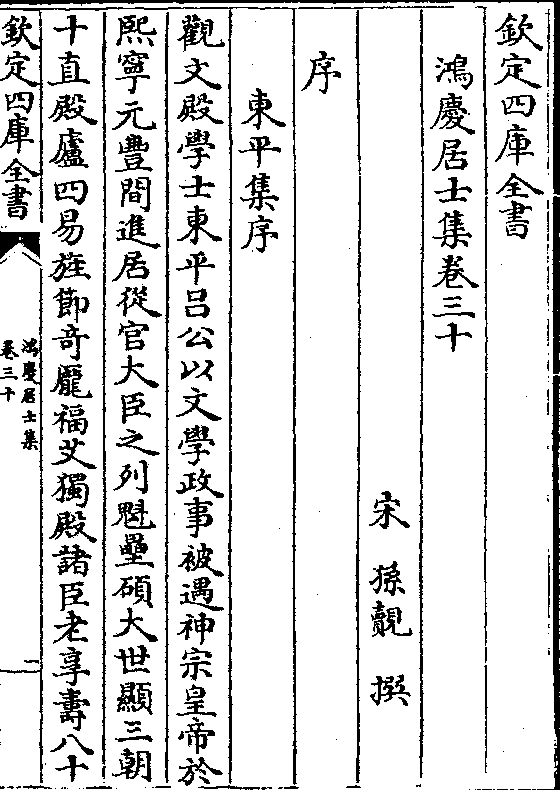 欽定四庫全書
鴻慶居士集卷三十
宋 孫覿 撰
序
東平集序
觀文殿學士東平吕公以文學政事被遇神宗皇帝於
熙寧元豐間進居從官大臣之列魁壘碩大世顯三朝
十直殿廬四易旌節奇龎福艾獨殿諸臣老享壽八十
欽定四庫全書
鴻慶居士集
卷三十
一